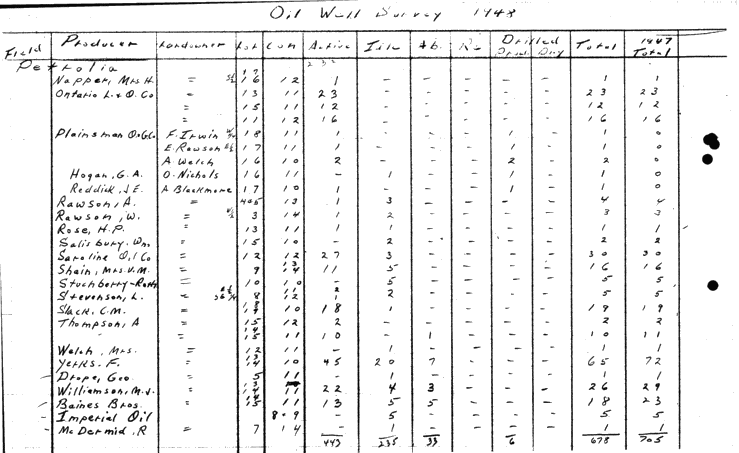 Oil Well Survey 1948
Field Producer Landowner Lot Con Active Idle Ab. Re Drilled Prod. Dry Total 1947 Total
Petrolia
Napper, Mrs H. " S½ 17 16 12 1 - - - - - 1 1
Ontario L. & O. Co " 13 11 23 - - - - - 23 23
" 15 11 12 - - - - - 12 12
" 11 12 16 - - - - - 16 16
Plainsman O&G Co F. Irwin 18 11 1 - - - 1 - 1 0
E. Rawson E½ 17 11 1 - - - 1 - 1 0
A. Welch 16 10 2 - - - 2 - 2 0
Hogan, G.A. O. Nichols 16 11 - 1 - - 1 - 1 0
Reddick, J.E. A Blackmore 17 10 1 - - - 1 - 1 0
Rawson, A. " 4&5 13 1 3 - - - - 4 4
Rawson, W. " 3 14 1 2 - - - - 3 3
Rose, H.P. " 13 11 1 - - - - 1 1
Salisbury. Wm. " 15 10 - 2 - - - - 2 2
Saroline Oil Co " 12 12 27 3 - - - - 30 30
Shain, Mrs. V.M. " 9 13 14 11 5 - - - - 16 16
Stuchberry- " 10 10 - 5 - - - - 5 5
Stevenson, L. " 8 11 12 2 1 2 - - - - 5 5
Slack, C.M. " 18 19 10 18 1 - - - - 19 19
Thompson, A " 15 12 2 - - - - - 2 2
" 14 15 11 10 - 1 - - - 10 11
Welch, Mrs. " 12 11 - 1 - - - - 1 1
Yerks. F. " 13 14 10 45 20 7 - - - 65 72
Drope, Geo " 5 11 - 1 - - - - 1 1
Williamson, M.J. " 13 14 11 22 4 3 - - - 26 29
Baines Bros. " 14 15 11 13 5 5 - - - 18 23
Imperial Oil 8-9 - 5 - - - - 5 5
McDermid. R " 7 14 - 1 - - - - 1 1
443 235 33 6 678 705